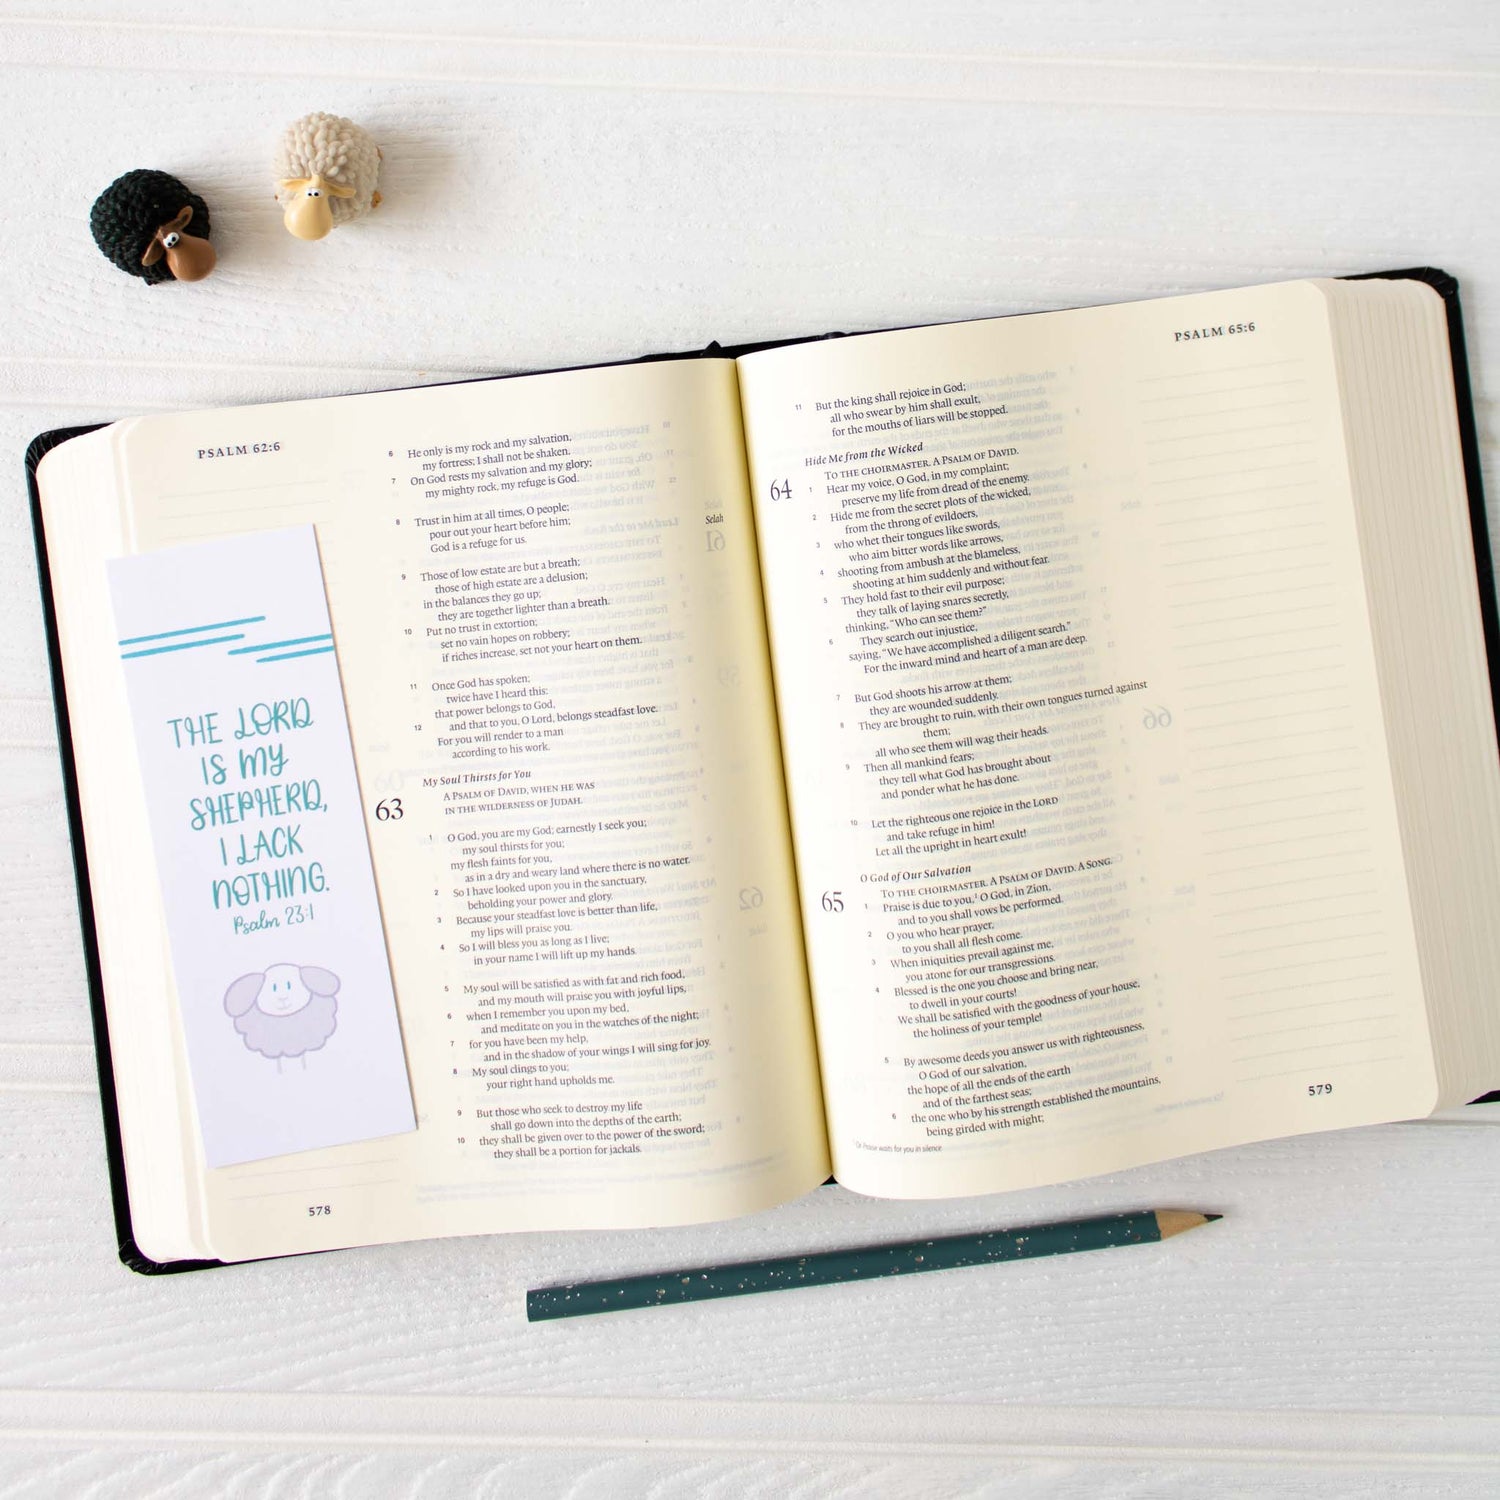 PSALM 62:6
6 He only is my rock and my salvation,
my fortress; I shall not be shaken.
7 On God rests my salvation and my glory;
my mighty rock, my refuge is God.
8 Trust in him at all times, O people;
pour out your heart before him;
God is a refuge for us. Selah
9 Those of low estate are but a breath;
those of high estate are a delusion;
in the balances they go up;
they are together lighter than a breath.
10 Put no trust in extortion;
set no vain hopes on robbery;
if riches increase, set not your heart on them.
11 Once God has spoken;
twice have I heard this:
that power belongs to God,
12 and that to you, O Lord, belongs steadfast love.
For you will render to a man
according to his work.
My Soul Thirsts for You
63 A PSALM OF DAVID, WHEN HE WAS
IN THE WILDERNESS OF JUDAH.
1 O God, you are my God; earnestly I seek you;
my soul thirsts for you;
my flesh faints for you,
as in a dry and weary land where there is no water.
2 So I have looked upon you in the sanctuary,
beholding your power and glory.
3 Because your steadfast love is better than life,
my lips will praise you.
4 So I will bless you as long as I live;
in your name I will lift up my hands.
5 My soul will be satisfied as with fat and rich food,
and my mouth will praise you with joyful lips,
6 when I remember you upon my bed,
and meditate on you in the watches of the night;
7 for you have been my help,
and in the shadow of your wings I will sing for joy.
8 My soul clings to you;
your right hand upholds me.
9 But those who seek to destroy my life
shall go down into the depths of the earth;
10 they shall be given over to the power of the sword;
they shall be a portion for jackals.
578
THE LORD
IS MY
SHEPHERD,
I LACK
NOTHING.
Psalm 23:1
PSALM 65:6
11 But the king shall rejoice in God;
all who swear by him shall exult,
for the mouths of liars will be stopped.
Hide Me from the Wicked
64 TO THE CHOIRMASTER. A PSALM OF DAVID.
1 Hear my voice, O God, in my complaint;
preserve my life from dread of the enemy.
2 Hide me from the secret plots of the wicked,
from the throng of evildoers,
3 who whet their tongues like swords,
who aim bitter words like arrows,
4 shooting from ambush at the blameless,
shooting at him suddenly and without fear.
5 They hold fast to their evil purpose;
they talk of laying snares secretly,
thinking, "Who can see them?"
6 They search out injustice,
saying, "We have accomplished a diligent search."
For the inward mind and heart of a man are deep.
7 But God shoots his arrow at them;
they are wounded suddenly.
8 They are brought to ruin, with their own tongues turned against
them;
all who see them will wag their heads.
9 Then all mankind fears;
they tell what God has brought about
and ponder what he has done.
10 Let the righteous one rejoice in the LORD
and take refuge in him!
Let all the upright in heart exult!
O God of Our Salvation
65 TO THE CHOIRMASTER. A PSALM OF DAVID. A SONG.
1 Praise is due to you,¹ O God, in Zion,
and to you shall vows be performed.
2 O you who hear prayer,
to you shall all flesh come.
3 When iniquities prevail against me,
you atone for our transgressions.
4 Blessed is the one you choose and bring near,
to dwell in your courts!
We shall be satisfied with the goodness of your house,
the holiness of your temple!
5 By awesome deeds you answer us with righteousness,
O God of our salvation,
the hope of all the ends of the earth
and of the farthest seas;
6 the one who by his strength established the mountains,
being girded with might;
¹ Or Praise waits for you in silence
579